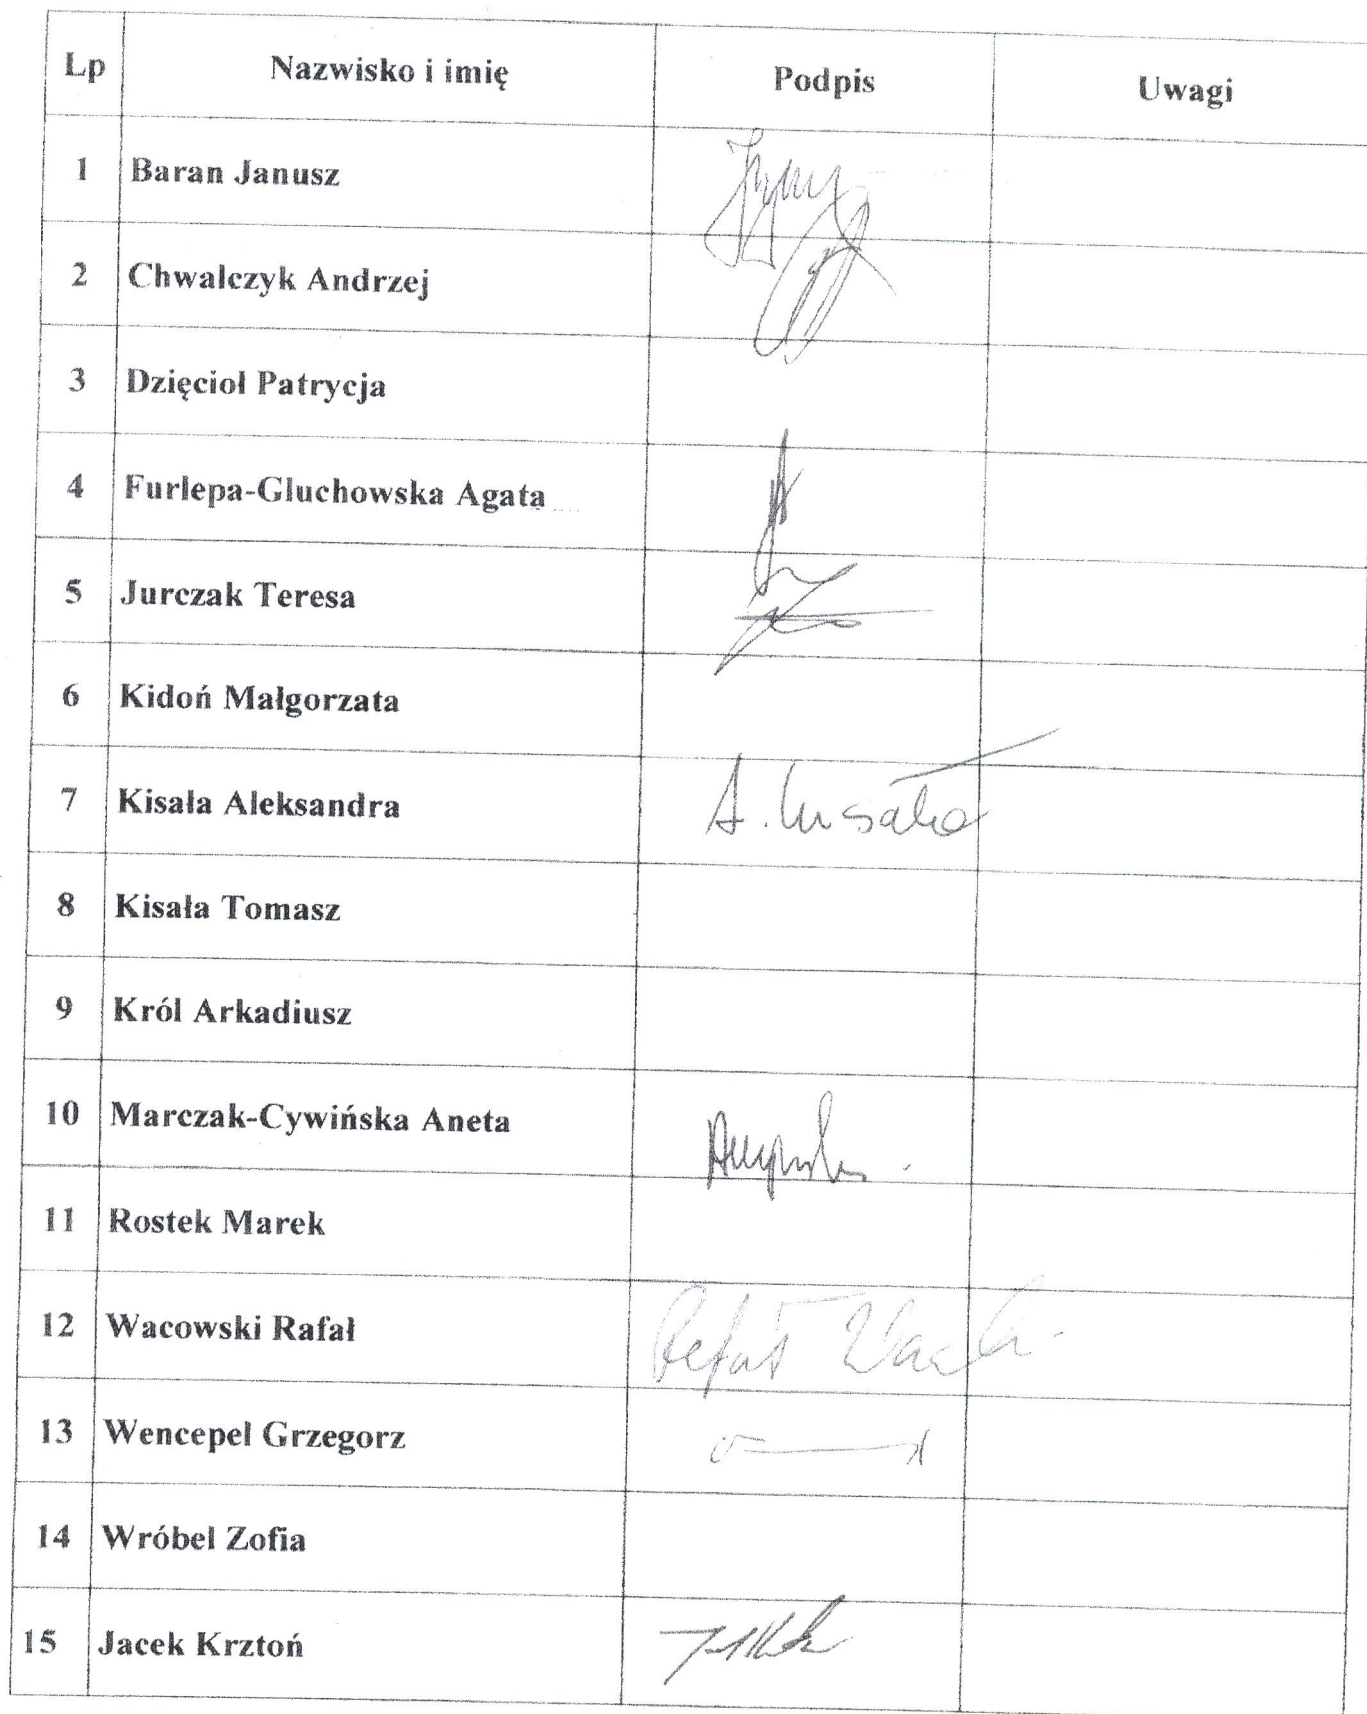 Lp Nazwisko i imię Podpis Uwagi
1 Baran Janusz
2 Chwalczyk Andrzej
3 Dzięcioł Patrycja
4 Furlepa-Gluchowska Agata
5 Jurczak Teresa
6 Kidoń Małgorzata
7 Kisała Aleksandra A. Kisała
8 Kisała Tomasz
9 Król Arkadiusz
10 Marczak-Cywińska Aneta
11 Rostek Marek
12 Wacowski Rafał Rafał
13 Wencepel Grzegorz
14 Wróbel Zofia
15 Jacek Krztoń